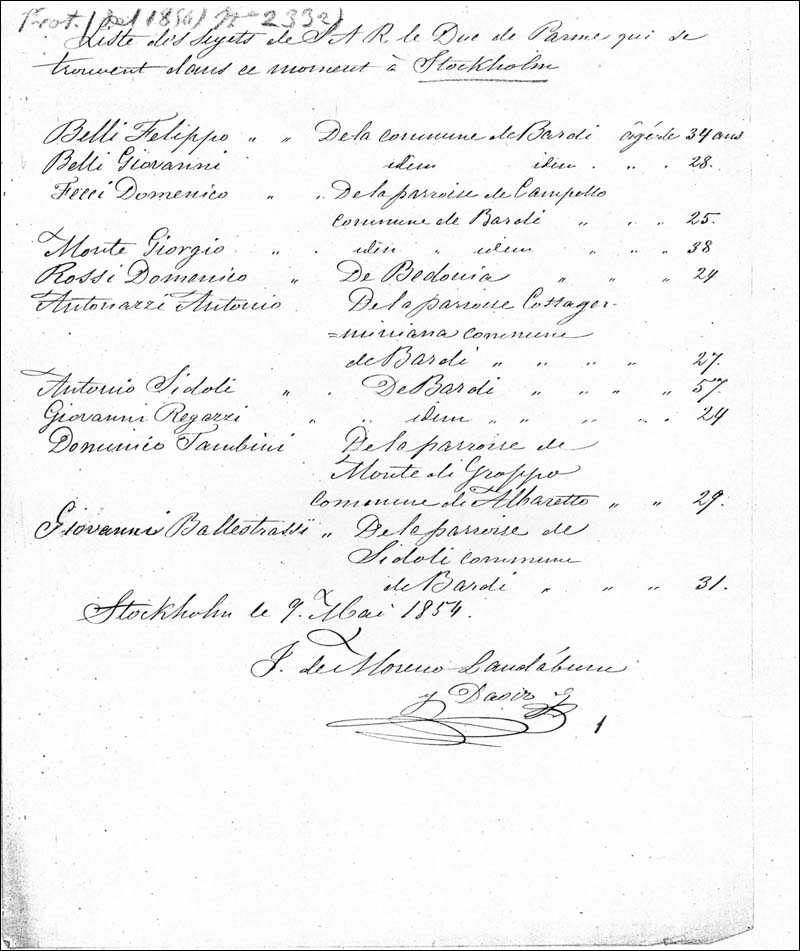 Prot. (del 1854) N° 2332)
Liste des sujets de S A R le Duc de Parme qui se
trouvent dans ce moment à Stockholm
Belli Felippo " " De la commune de Bardi âgé de 34 ans
Belli Giovanni idem idem . " . 28.
Fecci Domenico " " De la parroise de Campello
commune de Bardi " " " 25.
Monte Giorgio . " . idem " idem " " " 38
Rossi Domenico " De Bedonia " " " 24
Antonazzi Antonio De la parroise Cossager-
=miniana commune
de Bardi " " " " 27.
Antonio Sidoli " . De Bardi " " " " 57.
Giovanni Regazzi " " idem " " " " . 24
Domenico Tambini De la parroise de
Monte di Groppo
commune di Albaretto " " 29.
Giovanni Ballestrassi " De la parroise de
Sidoli commune
de Bardi " " " 31.
Stockholm le 9. Mai 1854.
J. de Moreno Landáburu
y Dasir
1